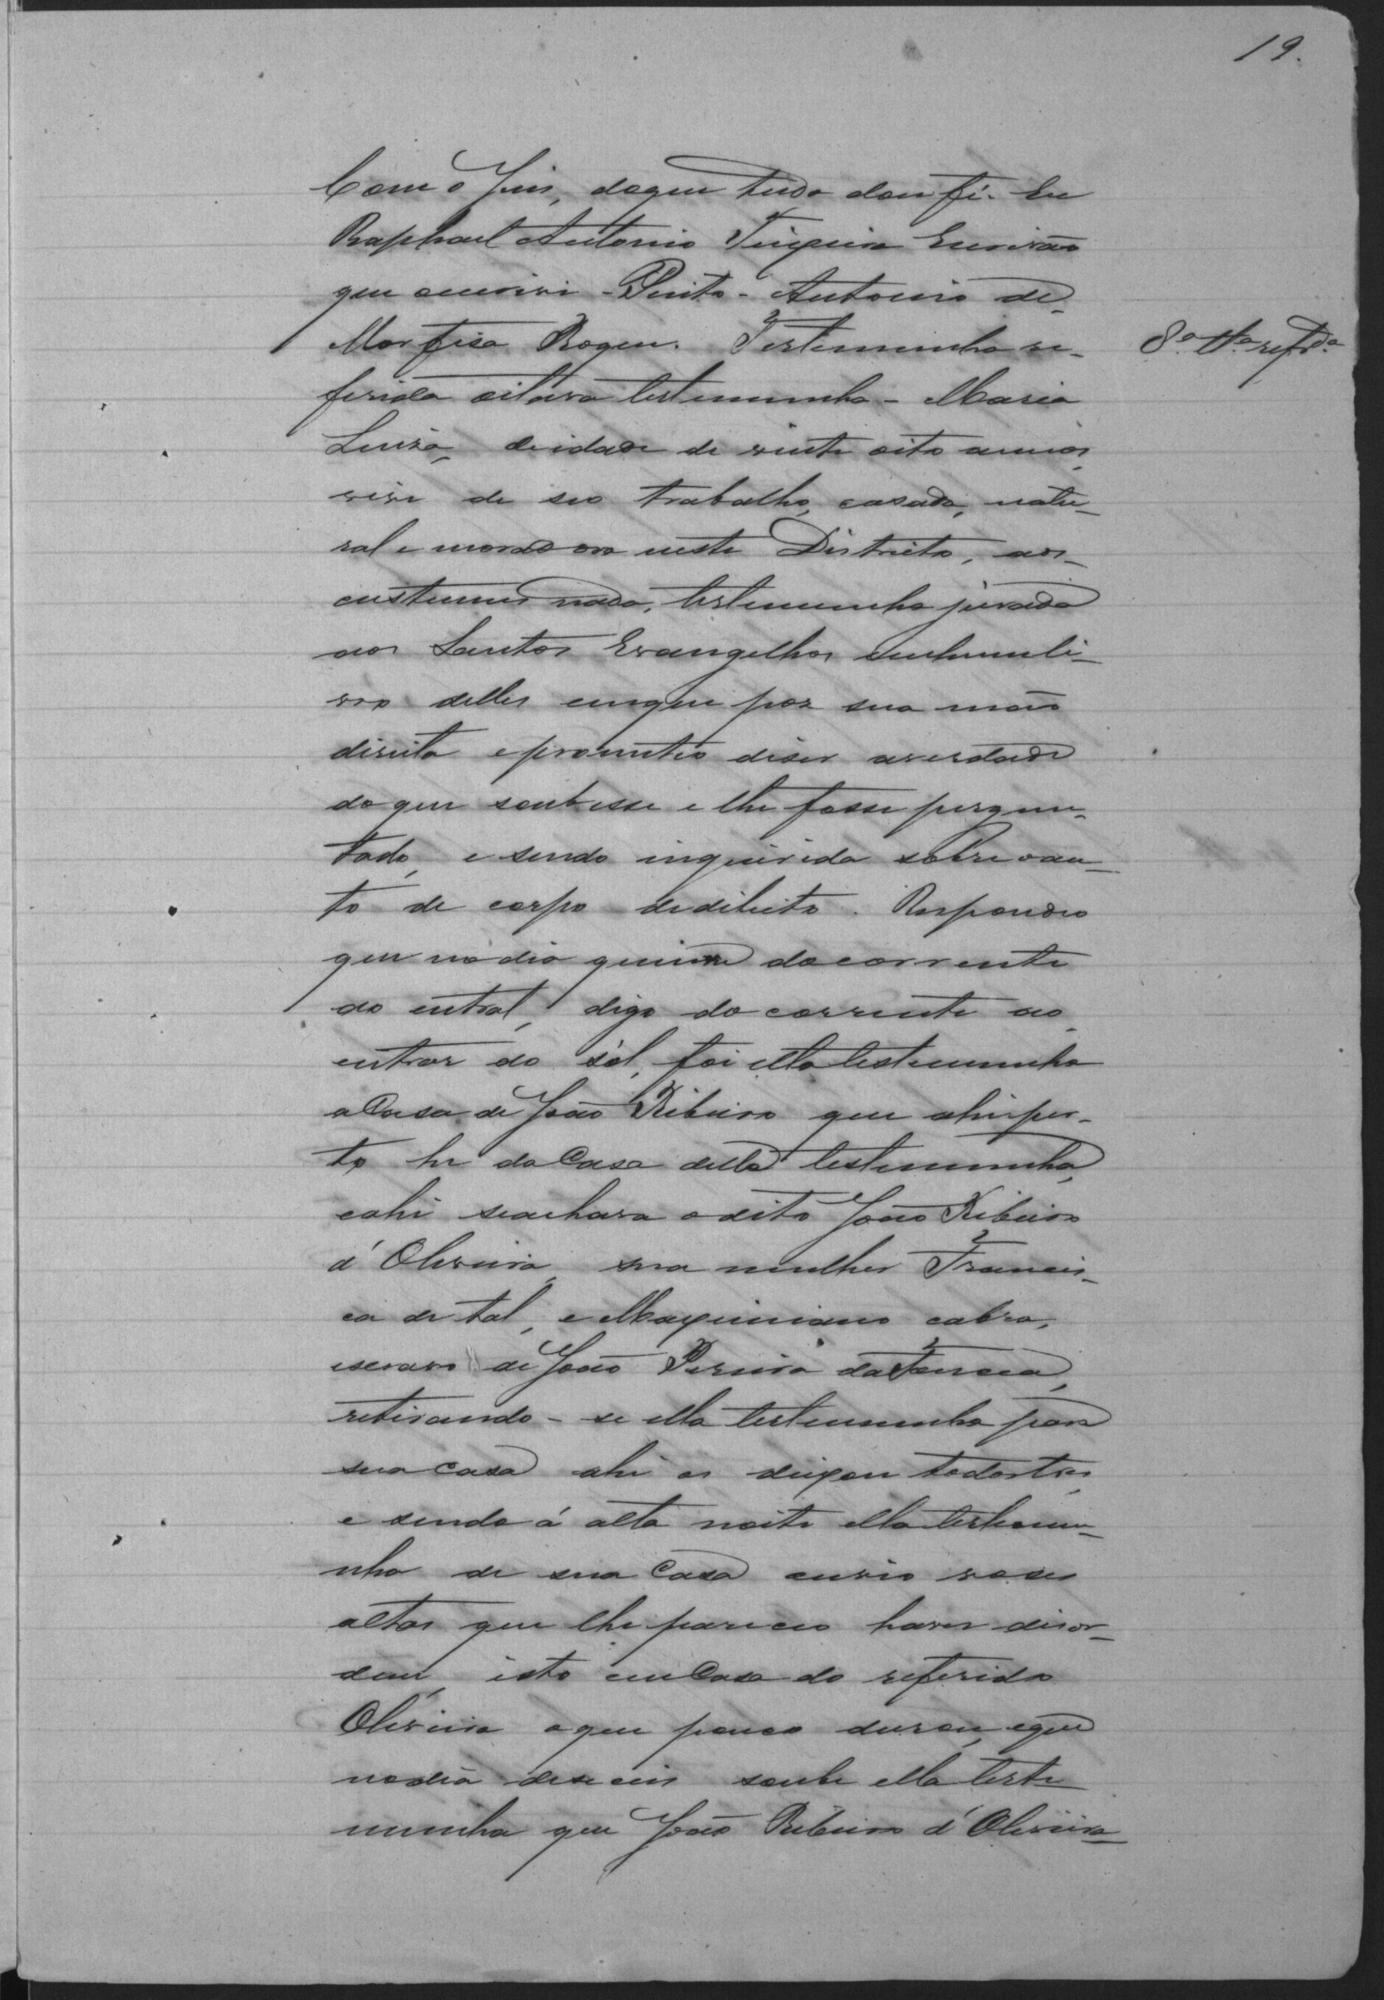 19.
Com o Juis, doque tudo dou fé. Eu
Raphael Antonio Teixeira Escrivão
que escrivi - Pinto - Antonio de
Marfisa Rogeu. Testemunha re-
8.ª tt.ª refrd.ª
firida oitava testemunha - Maria
Luisa, de idade de vinte oito annos,
vive de seo trabalho, casada, natu-
ral e moradora neste Districto, aos
custumes nada, testemunha jurada
aos Santos Evangelhos em hum li-
vro delles em que poz sua mão
direita e prometeo diser averdade
do que soubesse e lhe fosse pergun-
tado, e sendo inquirida sobre o au-
to de corpo de dilicto. Respondeo
que no dia quinse do corrente
ao entral, digo do corrente ao
entrar do sól, foi ella testemunha
a Casa de João Ribeiro que ahi per-
to he da Casa della testemunha,
e ahi seachava o dito João Ribeiro
d'Oliveira, sua mulher Francis-
ca de tal, e Maximiano cabra,
escravo de João Pereira da Fonceca,
retirando-se ella testemunha para
sua casa ahi os deixou todos tres,
e sendo á alta noite ella testemu-
nha de sua Casa ouvio voses
altas que lhe pareceo haver desor-
dem, isto em Casa do referido
Oliveira o que pouco durou, e que
no dia deseceis soube ella teste
munha que João Ribeiro d'Oliveira